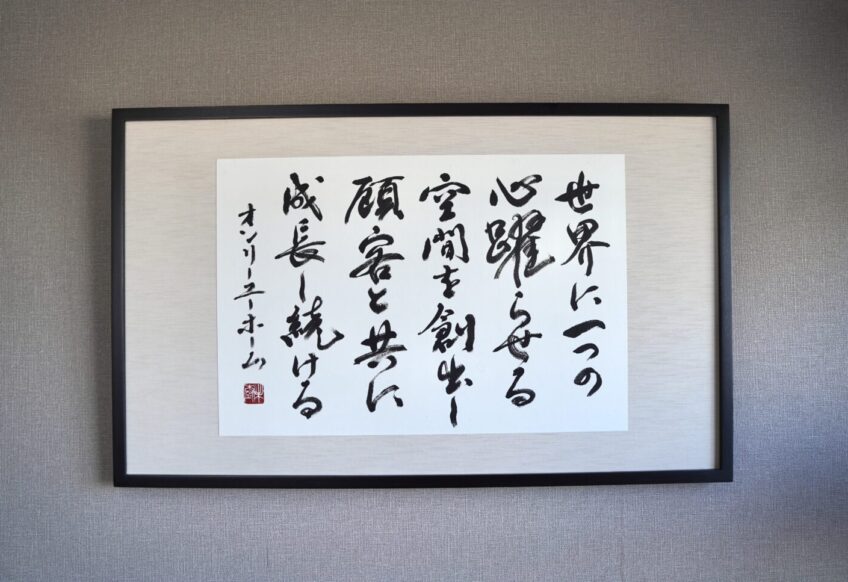 世界に一つの
心躍らせる
空間を創出し
顧客と共に
成長し続ける
オンリーユーホーム